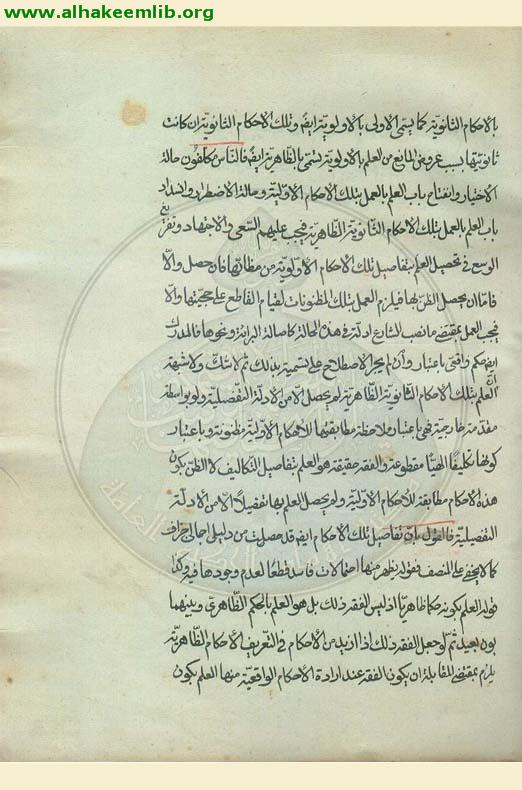 www.alhakeemlib.org
بالاحكام الثانوية كما يسمى الاولى بالاولوية ايضً وتلك الاحكام الثانوية ان كانت
ثانويتها بسبب عروض المانع من العلم بالاولوية يسمى بالظاهرية ايضً فالناس مكلفون حالة
الاختيار وانفتاح باب العلم بالعمل بتلك الاحكام الاولية وحالة الاضطرار وانسداد
باب العلم بالعمل بتلك الاحكام الثانوية الظاهرية فيجب عليهم السعى والاجتهاد وتفريغ
الوسع فى تحصيل العلم بتفاصيل تلك الاحكام الاولوية من مظانها فان حصل والّا
فامّا ان يحصل الظن بها فيلزم العمل بتلك المظنونات لقيام القاطع على حجيتها والّا
فيجب العمل بمقتضى ما نصب الشارع ادلة فى هذه الحالة كاصالة البرائة ونحوها فالمدرك
ايضً حكم واقتى باعتبار وان لم يجر الاصطلاح على تسميته بذلك ثم لا شك ولا شبهة
انّ العلم بتلك الاحكام الثانوية الظاهرية لم يحصل الّا من الادلة التفصيلية ولو بواسطة
مقدمة خارجية فهى باعتبار ملاحظة مطابقتها للاحكام الاولية مظنونة وباعتبار
كونها تكليفًا الهيًّا مقطوعة والفقه حقيقة هو العلم بتفاصيل التكاليف لا الظن بكون
هذه الاحكام مطابقة للاحكام الاولية ولم يحصل العلم بها تفصيلًا الّا من الادلة
التفصيلية فالقول بانّ تفاصيل تلك الاحكام ايضً قد حصلت من دليل اجمالى جزاف
كما لا يخفى على المنصف فقوله يظهر منها احتمالات فاسد قطعًا لعدم وجودها فيه وكذا
قوله العلم بكونه حكمًا ظاهريًّا اذ ليس الفقه ذلك بل هو العلم بالحكم الظاهرى وبينهما
بون بعيد ثمّ لو جعل الفقه ذلك اذا اريد من الاحكام فى التعريف الاحكام الظاهرية
يلزم بمقتضى المقابلة ان يكون الفقه عند ارادة الاحكام الواقعية منها العلم بكون